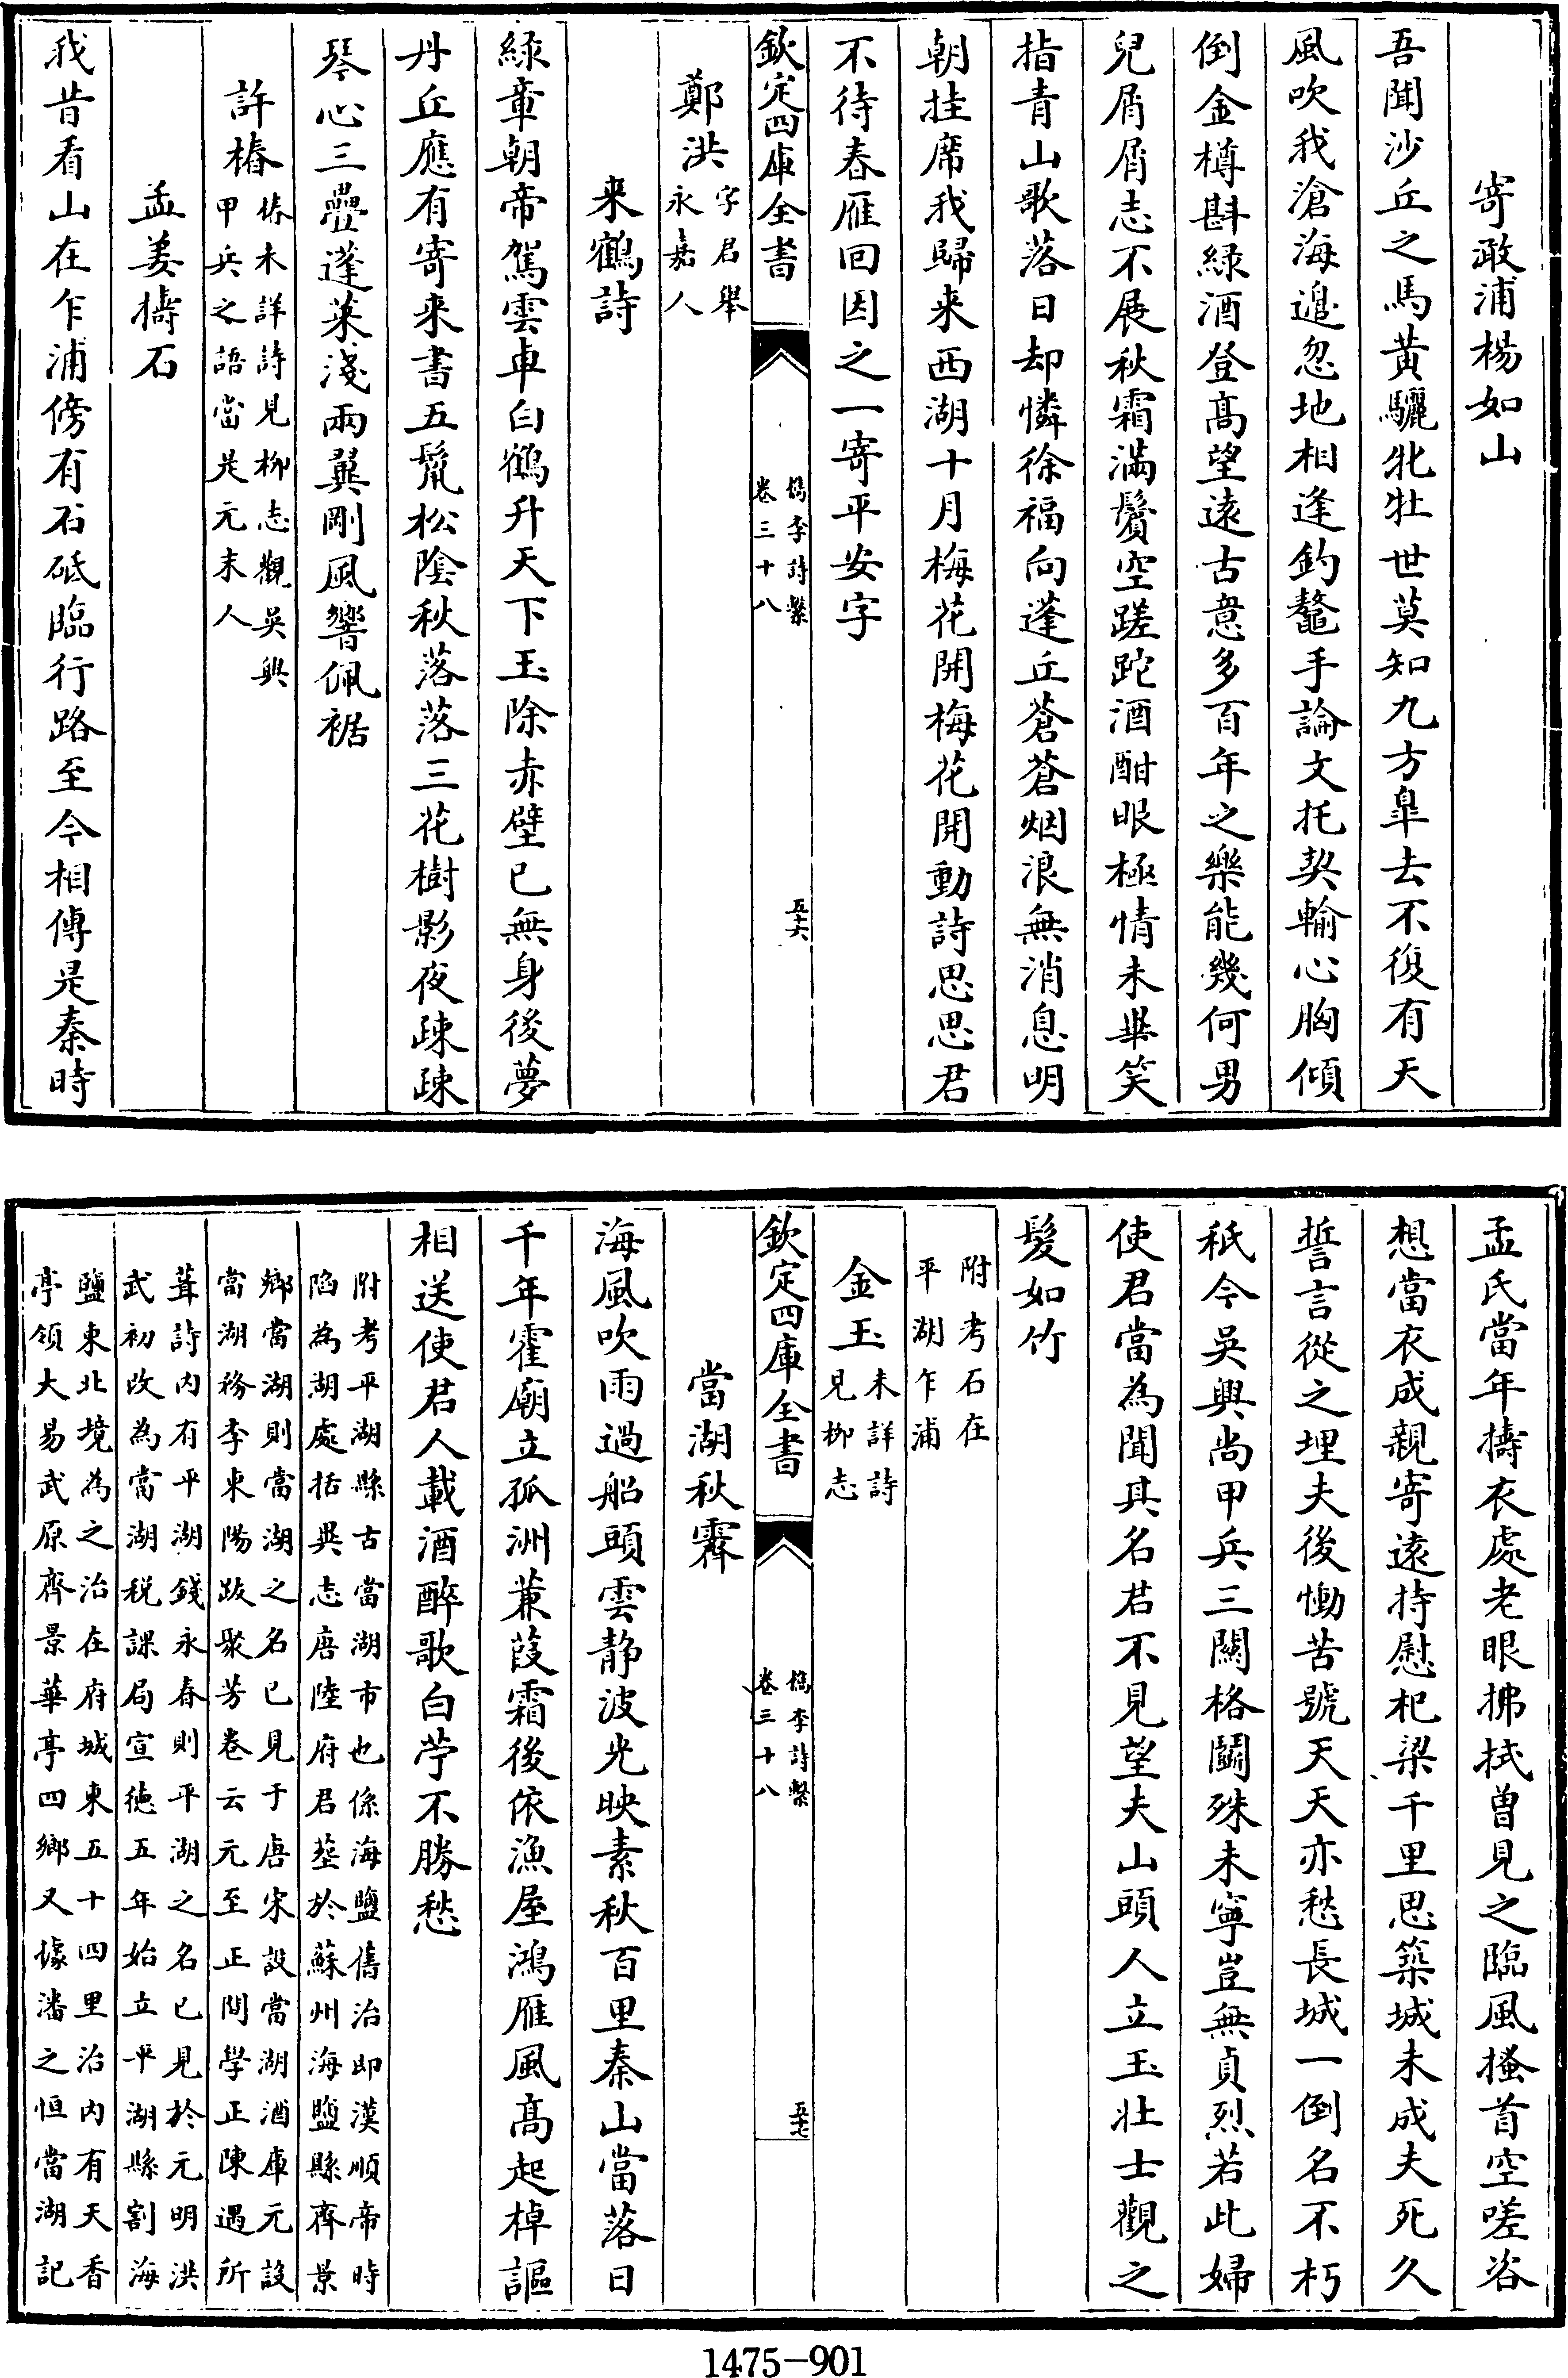 寄敢浦楊如山
吾聞沙丘之馬黄驪牝牡世莫知九方臯去不復有天
風吹我滄海邉忽地相逢釣鼇手論文托契輸心胸傾
倒金樽斟緑酒登髙望逺古意多百年之樂能幾何男
兒屑屑志不展秋霜滿鬢空蹉跎酒酣眼極情未畢笑
指青山歌落日却憐徐福向蓬丘蒼蒼烟浪無消息明
朝挂席我歸来西湖十月梅花開梅花開動詩思思君
不待春雁回因之一寄平安字
欽定四庫全書
檇李詩繫
卷三十八
五十六
鄭洪字君舉永嘉人
来鶴詩
緑章朝帝駕雲車白鶴升天下玉除赤壁已無身後夢
丹丘應有寄来書五鬛松陰秋落落三花樹影夜疎疎
琴心三疊蓬萊淺兩翼剛風響佩裾
許椿椿未詳詩見柳志觀吳興甲兵之語當是元末人
孟姜擣石
我昔看山在乍浦傍有石砥臨行路至今相傳是秦時
孟氏當年擣衣處老眼拂拭曽見之臨風搔首空嗟咨
想當衣成親寄逺持慰杞梁千里思築城未成夫死久
誓言從之埋夫後慟苦號天天亦愁長城一倒名不朽
秖今吳興尚甲兵三關格鬭殊未寧豈無貞烈若此婦
使君當為聞其名君不見望夫山頭人立玉壮士觀之
髮如竹
附考石在
平湖乍浦
金玉未詳詩見柳志
欽定四庫全書
檇李詩繫
卷三十八
五十七
當湖秋霽
海風吹雨過船頭雲静波光映素秋百里秦山當落日
千年霍廟立孤洲蒹葭霜後依漁屋鴻雁風髙起棹謳
相送使君人載酒醉歌白苧不勝愁
附考平湖縣古當湖市也係海鹽舊治即漢順帝時
陷為湖處括異志唐陸府君塟於蘇州海鹽縣齊景
鄉當湖則當湖之名已見于唐宋設當湖酒庫元設
當湖務李東陽跋聚芳巻云元至正間學正陳遇所
葺詩内有平湖錢永春則平湖之名已見於元明洪
武初改為當湖税課局宣徳五年始立平湖縣割海
鹽東北境為之治在府城東五十四里治内有天香
亭領大易武原齊景華亭四鄉又據潘之恒當湖記
1475-901